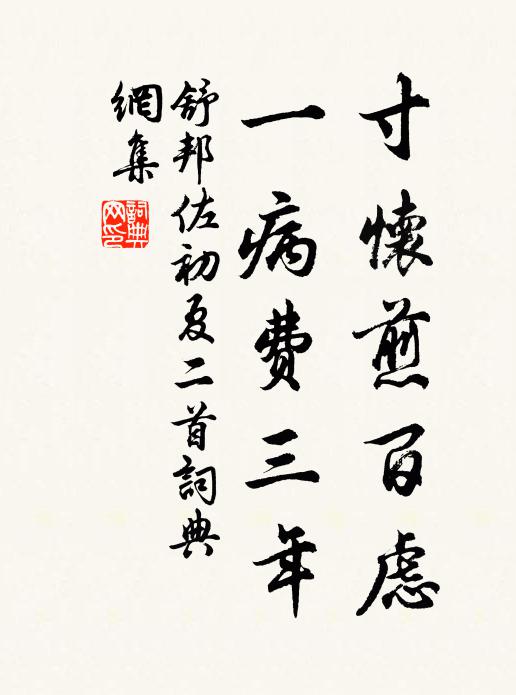 寸懷煎百慮
一病費三年
舒邦佐初夏二首詞典
網集
詞典
网印